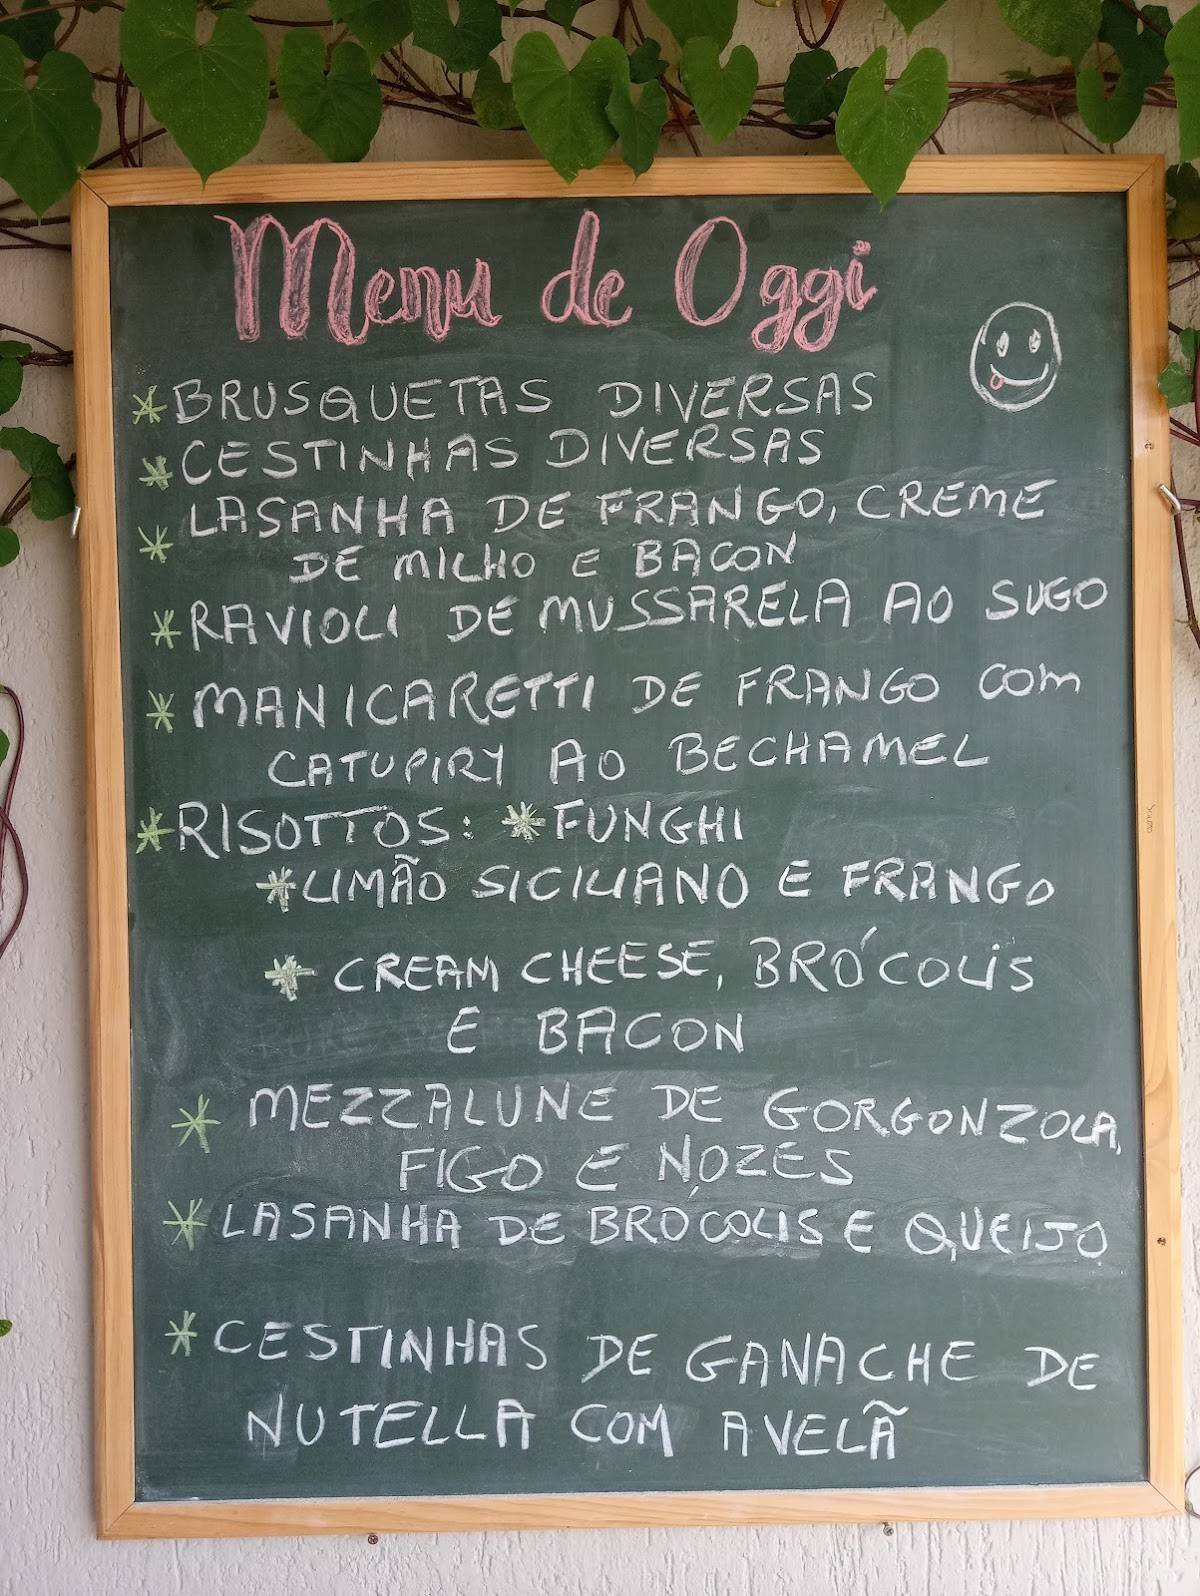 Menu de Oggi
* BRUSQUETAS DIVERSAS
* CESTINHAS DIVERSAS
* LASANHA DE FRANGO, CREME
DE MILHO E BACON
* RAVIOLI DE MUSSARELA AO SUGO
* MANICARETTI DE FRANGO COM
CATUPIRY AO BECHAMEL
* RISOTTOS: * FUNGHI
* LIMÃO SICILIANO E FRANGO
* CREAM CHEESE, BRÓCOLIS
E BACON
* MEZZALUNE DE GORGONZOLA,
FIGO E NOZES
* LASANHA DE BRÓCOLIS E QUEIJO
* CESTINHAS DE GANACHE DE
NUTELLA COM AVELÃ